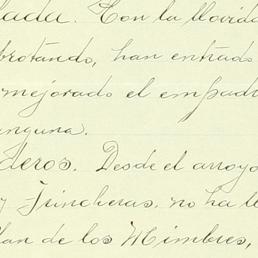 lada. Con la llovida
brotando, han entrado
mejorado el empadr
anguna.
deros. Desde el arroyo
y Trincheras, no ha ll
lan de los Mimbres,